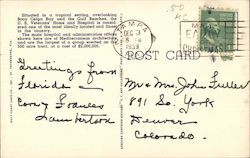 Situated in a tropical setting, overlooking
Boca Ciega Bay and the Gulf Beaches, the
U. S. Veterans' Home and Hospital is consid-
ered one of the most ideally located and finest
in the country.
The main hospital and administration offices
shown here are of Mediterranean architecture,
and are the largest of a group erected on the
500 acre tract, at a cost of $1,000,000.
TAMPA
DEC 3
1939
POST CARD
Greetings from
Florida -
Cora Frances
Mr & Mrs John Fuller
891 So. York
Denver
Colorado.